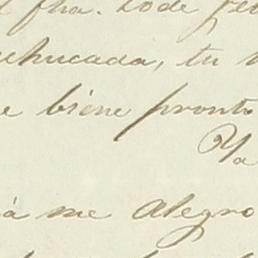 fha. Lo de
chucada, tu
e biene pronto
Ya
á me alegro